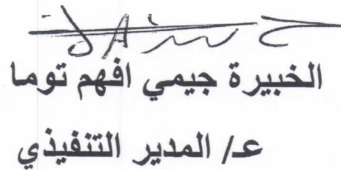 الخبيرة جيمي افهم توما
عـ/ المدير التنفيذي